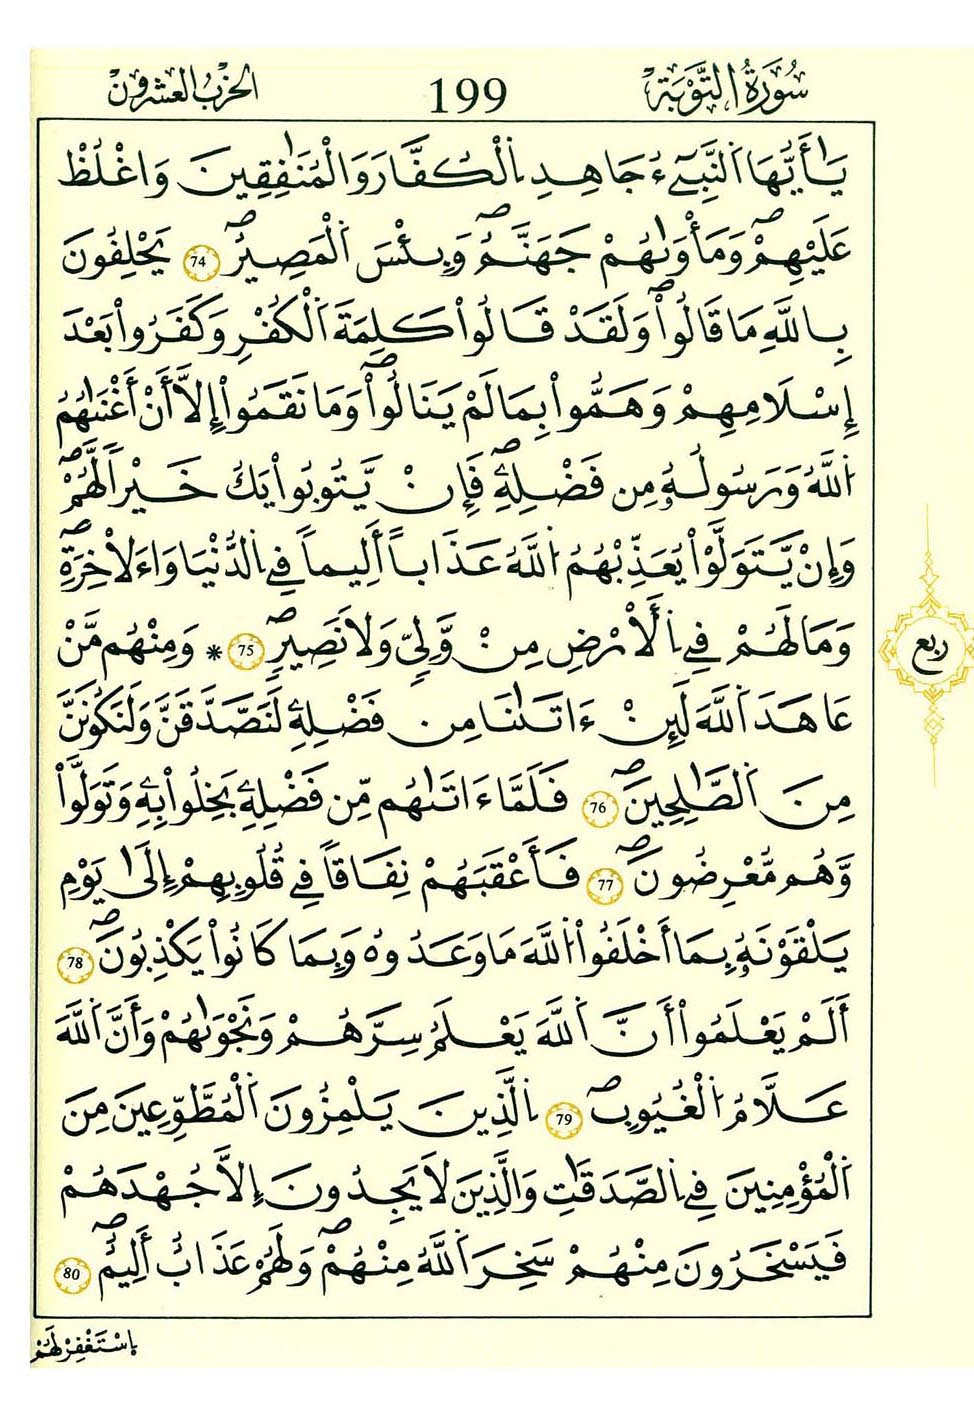 سُورَةُ التَّوْبَةِ 199 الحزب العشرون
يَٰأَيُّهَا اَ۬لنَّبِےٓءُ جَٰهِدِ اِ۬لْكُفَّارَ وَالْمُنَٰفِقِينَ وَاغْلُظْ
عَلَيْهِمْۖ وَمَأْوَيٰهُمْ جَهَنَّمُۖ وَبِئْسَ اَ۬لْمَصِيرُۖ 74 يَحْلِفُونَ
بِاللَّهِ مَا قَالُواْۖ وَلَقَدْ قَالُواْ كَلِمَةَ اَ۬لْكُفْرِ وَكَفَرُواْ بَعْدَ
إِسْلَٰمِهِمْ وَهَمُّواْ بِمَا لَمْ يَنَالُواْۖ وَمَا نَقَمُواْ إِلَّا أَنْ أَغْنَيٰهُمُ
اُ۬للَّهُ وَرَسُولُهُۥ مِن فَضْلِهِۦۖ فَإِنْ يَّتُوبُواْ يَكُ خَيْراً لَّهُمْۖ
وَإِنْ يَّتَوَلَّوْاْ يُعَذِّبْهُمُ اُ۬للَّهُ عَذَاباً أَلِيماً فِے اِ۬لدُّنْيَا وَاءَلَاخِرَةِۖ
وَمَا لَهُمْ فِے اِ۬لَارْضِ مِنْ وَّلِيّٖ وَلَا نَصِيرٖۖ 75 * وَمِنْهُم مَّنْ
عَٰهَدَ اَ۬للَّهَ لَئِنْ ءَاتَيٰنَا مِن فَضْلِهِۦ لَنَصَّدَّقَنَّ وَلَنَكُونَنَّ
مِنَ اَ۬لصَّٰلِحِينَۖ 76 فَلَمَّا ءَاتَيٰهُم مِّن فَضْلِهِۦ بَخِلُواْ بِهِۦ وَتَوَلَّواْ
وَّهُم مُّعْرِضُونَۖ 77 فَأَعْقَبَهُمْ نِفَاقاً فِے قُلُوبِهِمْ إِلَيٰ يَوْمِ
يَلْقَوْنَهُۥ بِمَا أَخْلَفُواْ اُ۬للَّهَ مَا وَعَدُوهُ وَبِمَا كَانُواْ يَكْذِبُونَۖ 78
أَلَمْ يَعْلَمُواْ أَنَّ اَ۬للَّهَ يَعْلَمُ سِرَّهُمْ وَنَجْوَيٰهُمْ وَأَنَّ اَ۬للَّهَ
عَلَّٰمُ اُ۬لْغُيُوبِۖ 79 اِ۬لَّذِينَ يَلْمِزُونَ اَ۬لْمُطَّوِّعِينَ مِنَ
اَ۬لْمُؤْمِنِينَ فِے اِ۬لصَّدَقَٰتِ وَالَّذِينَ لَا يَجِدُونَ إِلَّا جُهْدَهُمْ
فَيَسْخَرُونَ مِنْهُمْ سَخِرَ اَ۬للَّهُ مِنْهُمْۖ وَلَهُمْ عَذَابٌ أَلِيمٌۖ 80
ربع
اِ۪سْتَغْفِرْ لَهُمْ